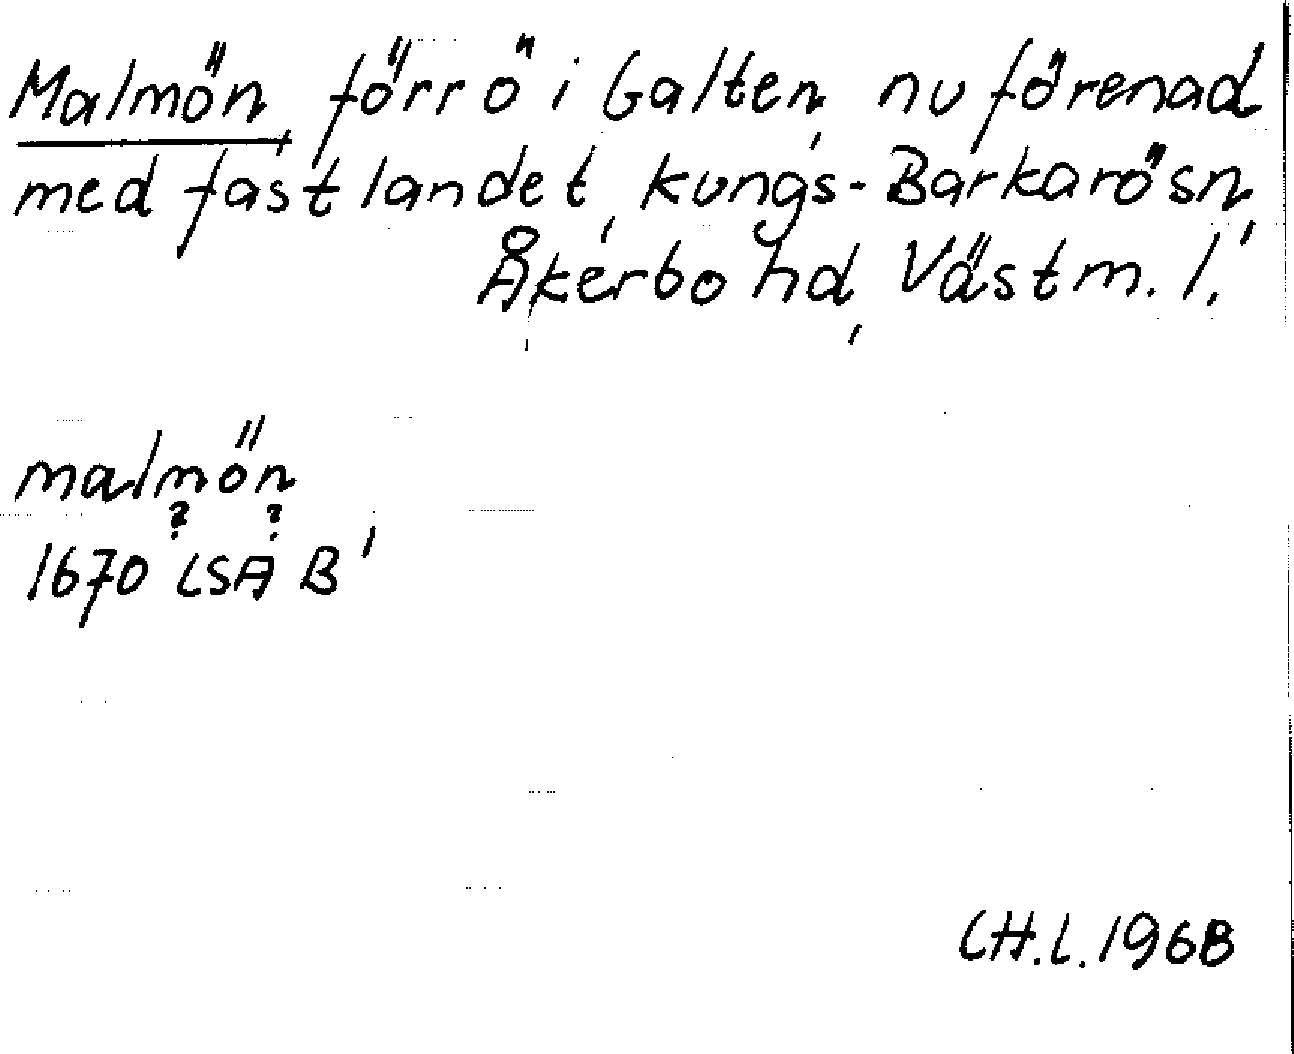 Malmön, förr ö i Galten, nu förenad
med fastlandet, Kungs-Barkarö sn,
Åkerbo hd, Västm. l.
malmön
? ?
1670 LSA B'
CH.L. 1968